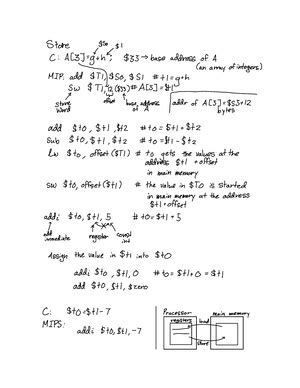 Store
$s0 $s1
C: A[3]=g+h; $s3 → base address of A
(an array of integers)
MIP: add $T1, $S0, $S1 # t1=g+h
Sw $T1, 12($s3) # A[3]=$t1
store word
offset
base address of A
addr of A[3]=$s3+12 bytes
add $t0, $t1, $t2 # t0=$t1+$t2
Sub $t0, $t1, $t2 # t0=$t1-$t2
Lw $t0, offset($T1) # t0 gets the values at the
address $t1+offset
in main memory
sw $t0, offset($t1) # the value in $T0 is started
in main memory at the address
$t1+offset
addi $t0, $t1, 5 # t0=$t1+5
add immediate
register
const int
Assign the value in $t1 into $t0
addi $t0, $t1, 0 # t0=$t1+0=$t1
add $t0, $t1, $zero
C: $t0=$t1-7
MIPS:
addi $t0, $t1, -7
Processor
main memory
registers
load
store